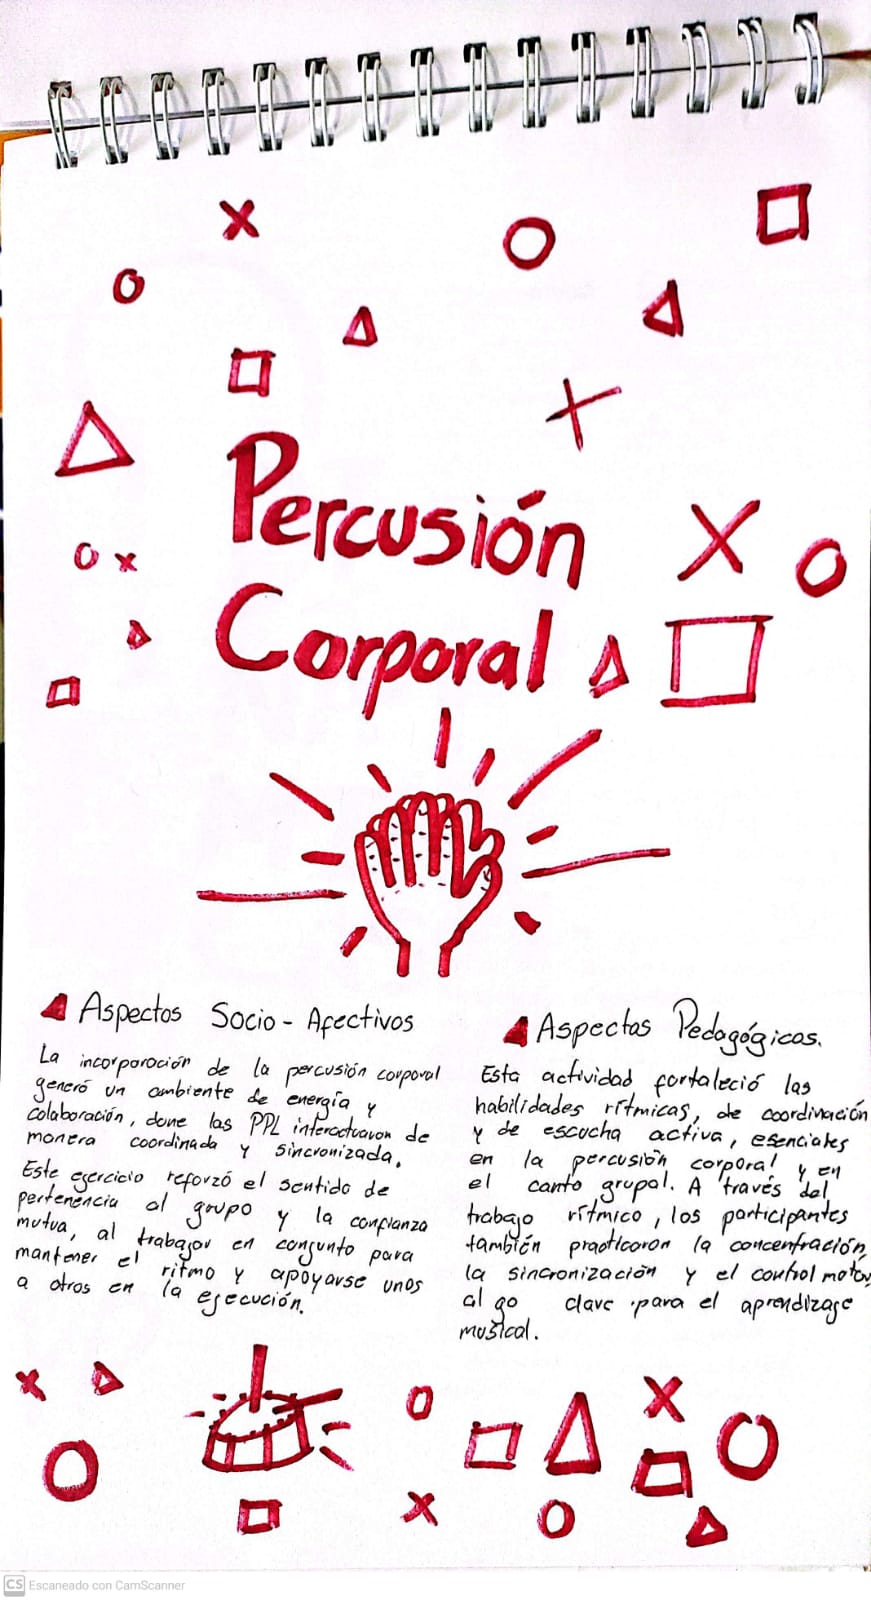 Percusión
Corporal
Aspectos Socio-Afectivos
La incorporación de la percusión corporal
generó un ambiente de energía y
colaboración, done las PPL interactuaron de
manera coordinada y sincronizada.
Este ejercicio reforzó el sentido de
pertenencia al grupo y la confianza
mutua, al trabajar en conjunto para
mantener el ritmo y apoyarse unos
a otros en la ejecución.
Aspectos Pedagógicos.
Esta actividad fortaleció las
habilidades rítmicas, de coordinación
y de escucha activa, esenciales
en la percusión corporal y en
el canto grupal. A través del
trabajo rítmico, los participantes
también practicaron la concentración,
la sincronización y el control motor,
algo clave para el aprendizaje
musical.
CS Escaneado con CamScanner